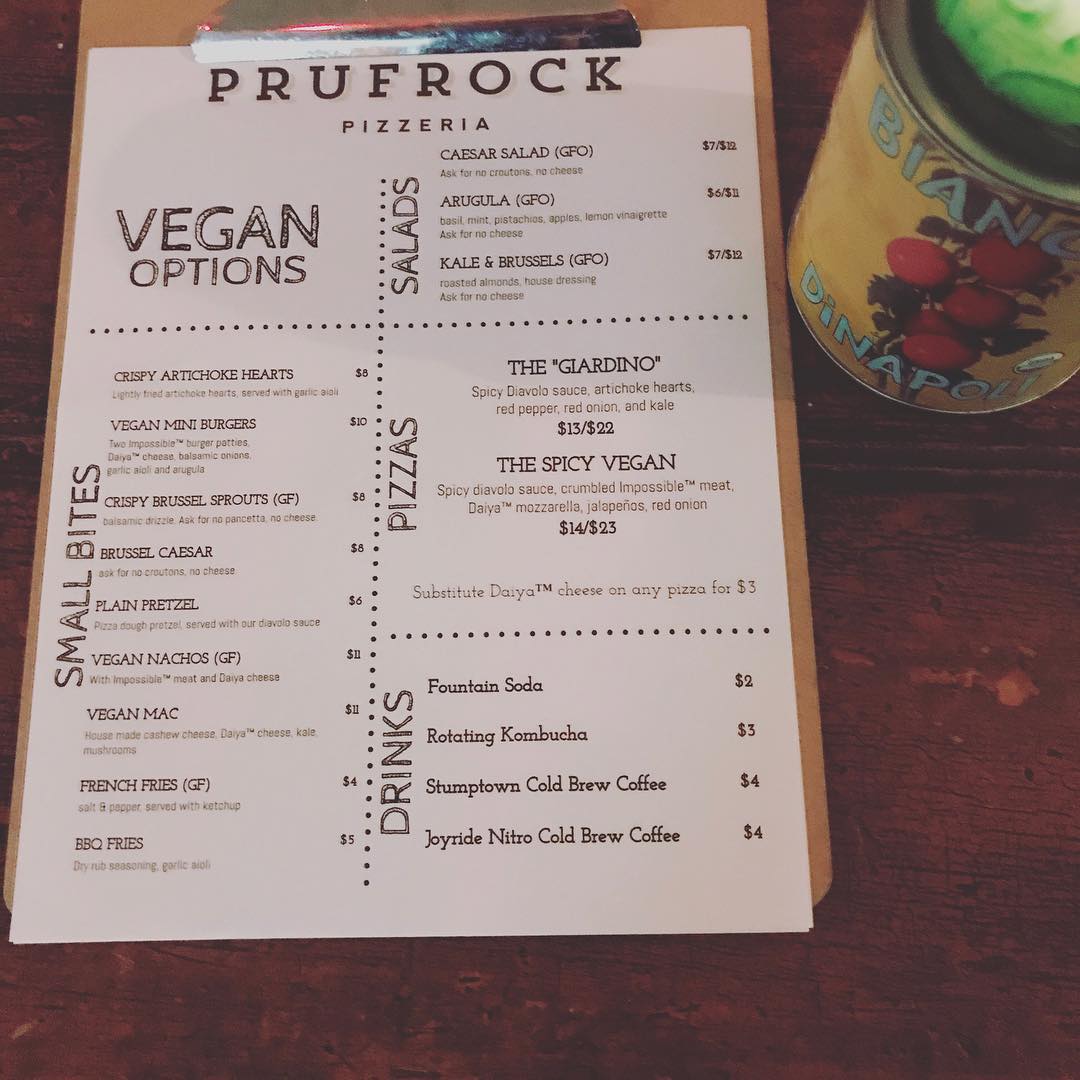 PRUFROCK
PIZZERIA
VEGAN
OPTIONS
SALADS
CAESAR SALAD (GFO) $7/$12
Ask for no croutons, no cheese
ARUGULA (GFO) $6/$11
basil, mint, pistachios, apples, lemon vinaigrette
Ask for no cheese
KALE & BRUSSELS (GFO) $7/$12
roasted almonds, house dressing
Ask for no cheese
SMALL BITES
CRISPY ARTICHOKE HEARTS $8
Lightly fried artichoke hearts, served with garlic aioli
VEGAN MINI BURGERS $10
Two Impossible™ burger patties,
Daiya™ cheese, balsamic onions,
garlic aioli and arugula
CRISPY BRUSSEL SPROUTS (GF) $8
balsamic drizzle. Ask for no pancetta, no cheese.
BRUSSEL CAESAR $8
ask for no croutons, no cheese
PLAIN PRETZEL $6
Pizza dough pretzel, served with our diavolo sauce
VEGAN NACHOS (GF) $11
With Impossible™ meat and Daiya cheese
VEGAN MAC $11
House made cashew cheese, Daiya™ cheese, kale,
mushrooms
FRENCH FRIES (GF) $4
salt & pepper, served with ketchup
BBQ FRIES $5
Dry rub seasoning, garlic aioli
PIZZAS
THE "GIARDINO"
Spicy Diavolo sauce, artichoke hearts,
red pepper, red onion, and kale
$13/$22
THE SPICY VEGAN
Spicy diavolo sauce, crumbled Impossible™ meat,
Daiya™ mozzarella, jalapeños, red onion
$14/$23
Substitute Daiya™ cheese on any pizza for $3
DRINKS
Fountain Soda $2
Rotating Kombucha $3
Stumptown Cold Brew Coffee $4
Joyride Nitro Cold Brew Coffee $4
BIANC
DiNAPOLI